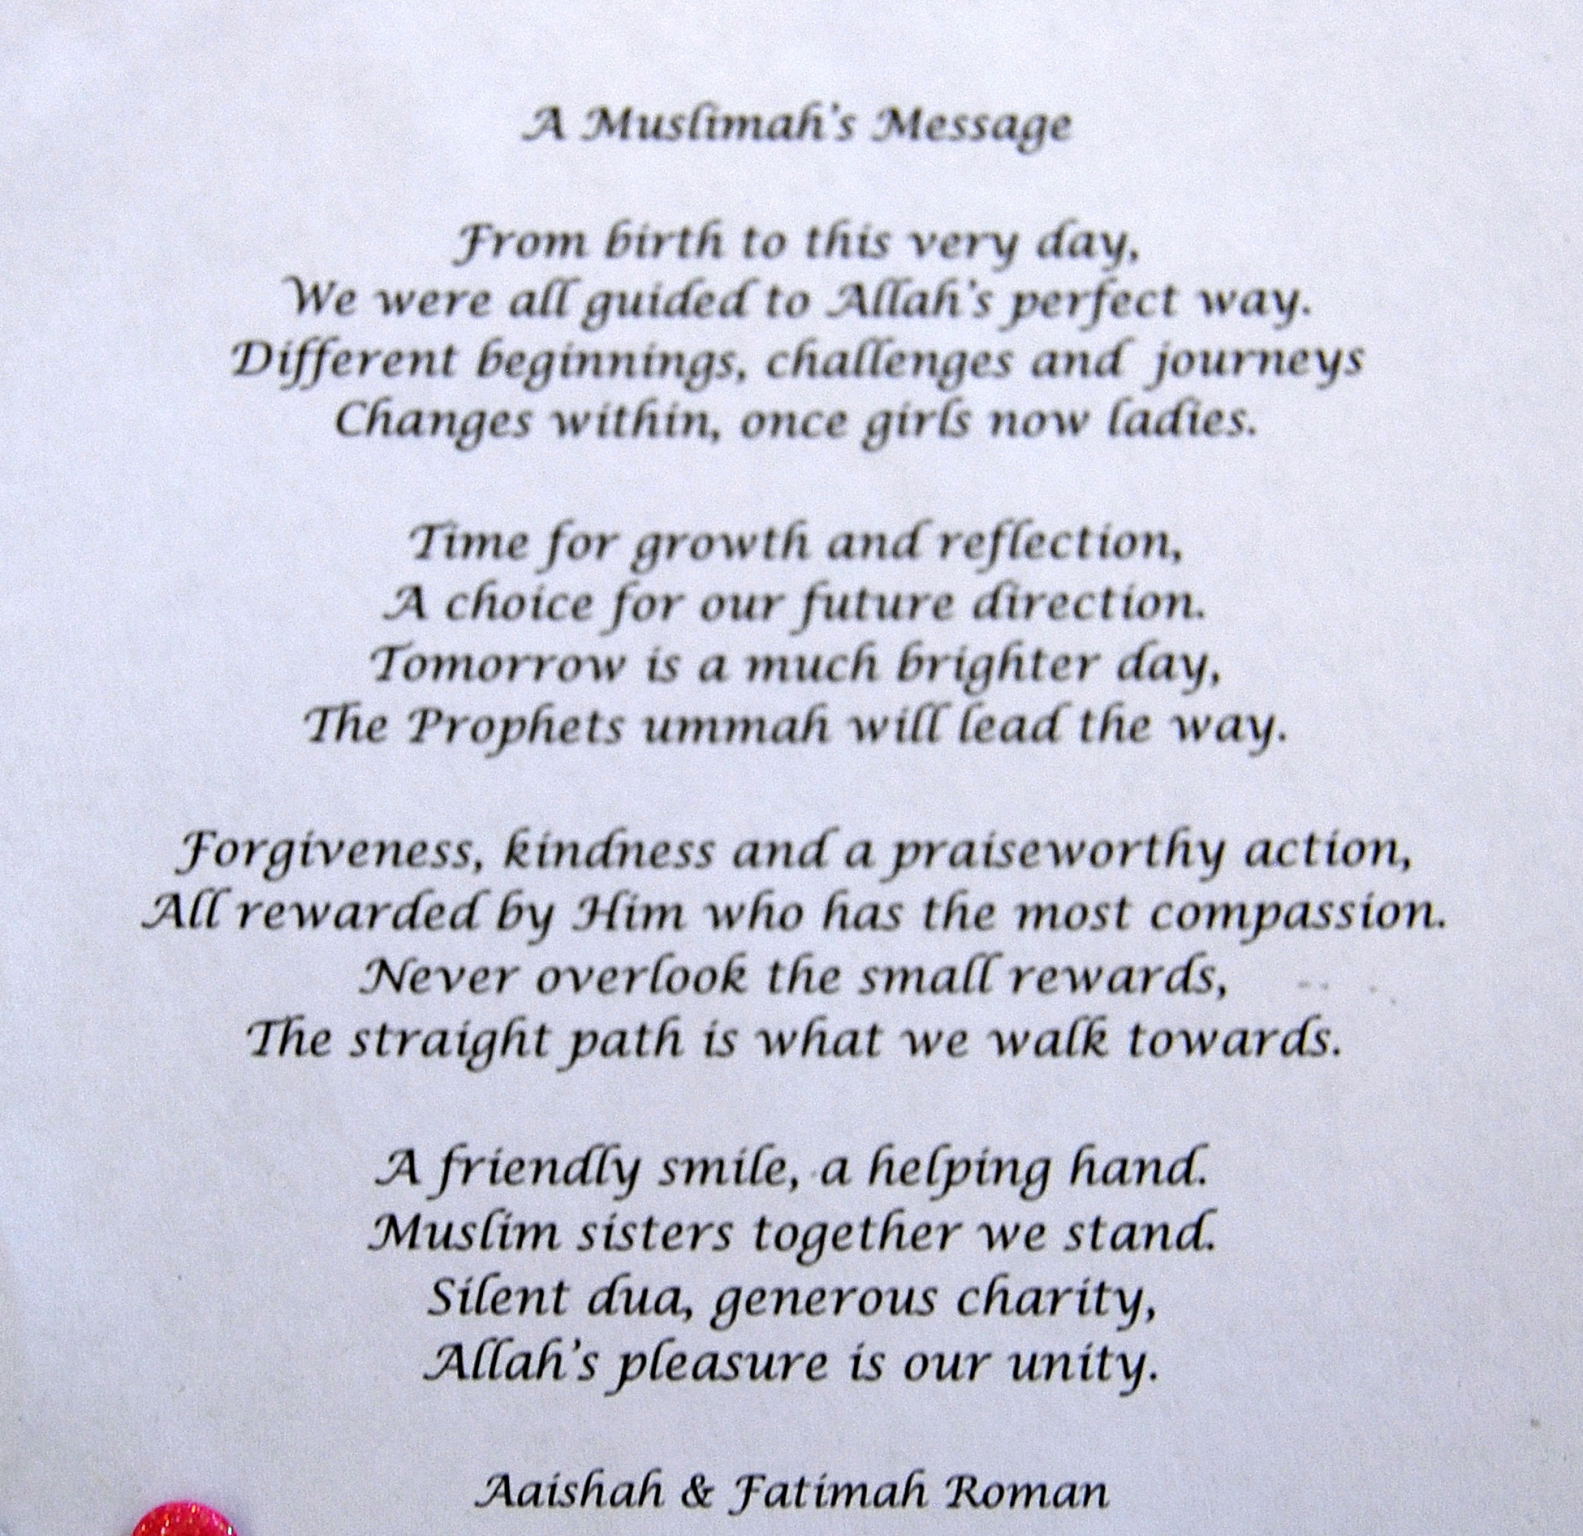 A Muslimah's Message
From birth to this very day,
We were all guided to Allah's perfect way.
Different beginnings, challenges and journeys
Changes within, once girls now ladies.
Time for growth and reflection,
A choice for our future direction.
Tomorrow is a much brighter day,
The Prophets ummah will lead the way.
Forgiveness, kindness and a praiseworthy action,
All rewarded by Him who has the most compassion.
Never overlook the small rewards,
The straight path is what we walk towards.
A friendly smile, a helping hand.
Muslim sisters together we stand.
Silent dua, generous charity,
Allah's pleasure is our unity.
Aaishah & Fatimah Roman